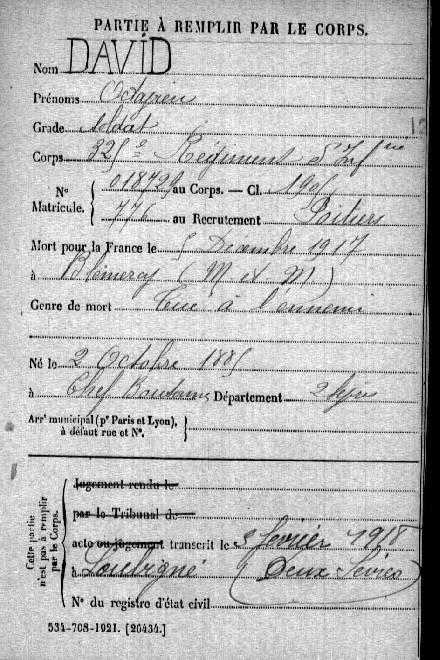 PARTIE À REMPLIR PAR LE CORPS.
Nom DAVID
Prénoms Octavien
Grade Soldat
Corps 325e Régiment d'Infrie
N° Matricule. 01872 au Corps. — Cl. 1905
776 au Recrutement Poitiers
Mort pour la France le 5 Décembre 1917
à Blémerey (M et M)
Genre de mort Tué à l'ennemi
Né le 2 Octobre 1885
à Chef Boutonne Département 2 Sèvres
Arrt municipal (pr Paris et Lyon), à défaut rue et N°.
Cette partie n'est pas à remplir par le Corps.
Jugement rendu le
par le Tribunal de
acte ou jugement transcrit le 5 février 1918
à Loubigné (Deux Sèvres)
N° du registre d'état civil
534-708-1921. [26434.]